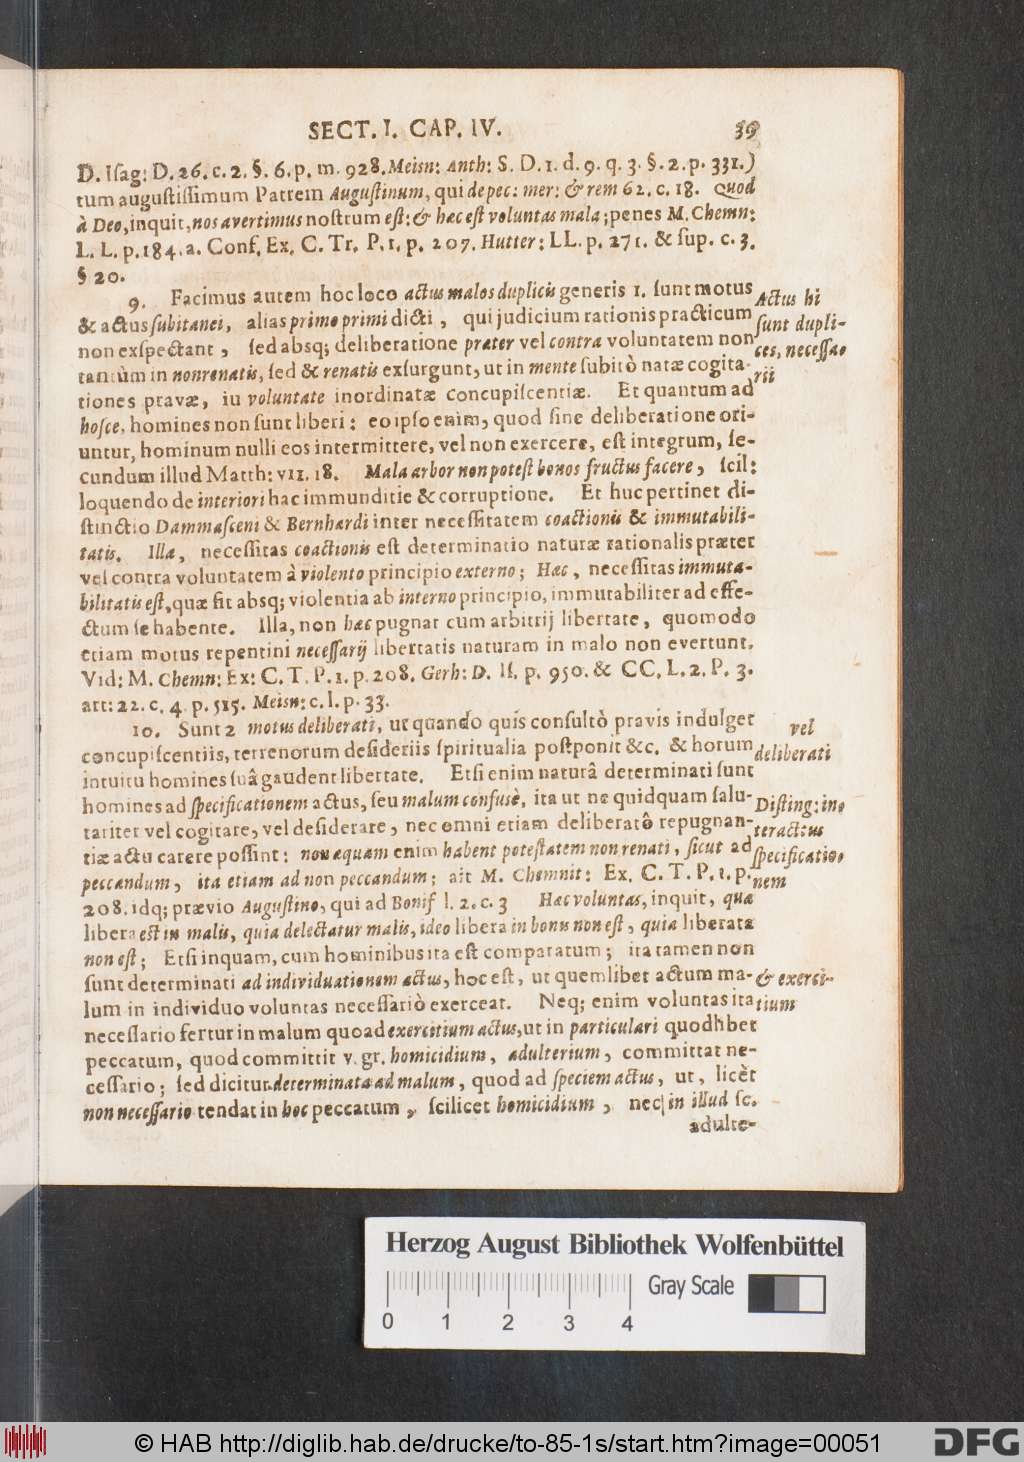 SECT. I. CAP. IV. 39
D. Iſag: D. 26. c. 2. §. 6. p. m. 928. Meisn: Anth: S. D. 1. d. 9. q. 3. §. 2. p. 331.)
tum auguſtiſſimum Patrem Auguſtinum, qui de pec: mer: & rem 62. c. 18. Quod
à Deo, inquit, nos avertimus noſtrum eſt: & hæc eſt voluntas mala; penes M. Chemn:
L. L. p. 184. a. Conf. Ex. C. Tr. P. 1. p. 207. Hutter: LL. p. 271. & ſup. c. 3.
§ 20.
9. Facimus autem hoc loco actus malos duplicis generis 1. ſunt motus
& actus ſubitanei, alias primo primi dicti, qui judicium rationis practicum
non exſpectant, ſed absq; deliberatione præter vel contra voluntatem non
tantùm in nonrenatis, ſed & renatis exſurgunt, ut in mente ſubitò natæ cogita-
tiones pravæ, iu voluntate inordinatæ concupiſcentiæ. Et quantum ad
hoſce, homines non ſunt liberi: eo ipſo enim, quod ſine deliberatione ori-
untur, hominum nulli eos intermittere, vel non exercere, eſt integrum, ſe-
cundum illud Matth: VII. 18. Mala arbor non poteſt bonos fructus facere, ſcil:
loquendo de interiori hac immunditie & corruptione. Et huc pertinet di-
ſtinctio Dammaſceni & Bernhardi inter neceſſitatem coactionis & immutabili-
tatis. Illa, neceſſitas coactionis eſt determinatio naturæ rationalis præter
vel contra voluntatem à violento principio externo; Hæc, neceſſitas immuta-
bilitatis eſt, quæ fit absq; violentia ab interno principio, immutabiliter ad effe-
ctum ſe habente. Illa, non hæc pugnat cum arbitrij libertate, quomodo
etiam motus repentini neceſſarij libertatis naturam in malo non evertunt.
Vid: M. Chemn: Ex: C. T. P. 1. p. 208. Gerh: D. Iſ. p. 950. & CC. L. 2. P. 3.
art: 22. c. 4. p. 515. Meisn: c. l. p. 33.
10. Sunt 2 motus deliberati, ut quando quis conſultò pravis indulget
concupiſcentiis, terrenorum deſideriis ſpiritualia poſtponit &c. & horum
intuitu homines ſuâ gaudent libertate. Etſi enim naturâ determinati ſunt
homines ad ſpecificationem actus, ſeu malum confuſè, ita ut ne quidquam ſalu-
tariter vel cogitare, vel deſiderare, nec omni etiam deliberatô repugnan-
tiæ actu carere poſſint: non æquam enim habent poteſtatem non renati, ſicut ad
peccandum, ita etiam ad non peccandum; ait M. Chemnit: Ex. C. T. P. 1. p.
208. idq; prævio Auguſtino, qui ad Bonif l. 2. c. 3 Hæc voluntas, inquit, quæ
libera eſt in malis, quia delectatur malis, ideo libera in bonu non eſt, quia liberata
non eſt; Etſi inquam, cum hominibus ita eſt comparatum; ita tamen non
ſunt determinati ad individuationem actus, hoc eſt, ut quemlibet actum ma-
lum in individuo voluntas neceſſariò exerceat. Neq; enim voluntas ita
neceſſario fertur in malum quoad exercitium actus, ut in particulari quodlibet
peccatum, quod committit v. gr. homicidium, adulterium, committat ne-
ceſſario; ſed dicitur determinata ad malum, quod ad ſpeciem actus, ut, licèt
non neceſſario tendat in hoc peccatum, ſcilicet homicidium, nec in illud ſc.
adulte-
Actus hi
ſunt dupli-
ces, neceſſa-
rii
vel
deliberati
Diſting: in-
ter actus
ſpecificatio-
nem
& exerci-
tium
Herzog August Bibliothek Wolfenbüttel
Gray Scale
0 1 2 3 4
© HAB http://diglib.hab.de/drucke/to-85-1s/start.htm?image=00051
DFG